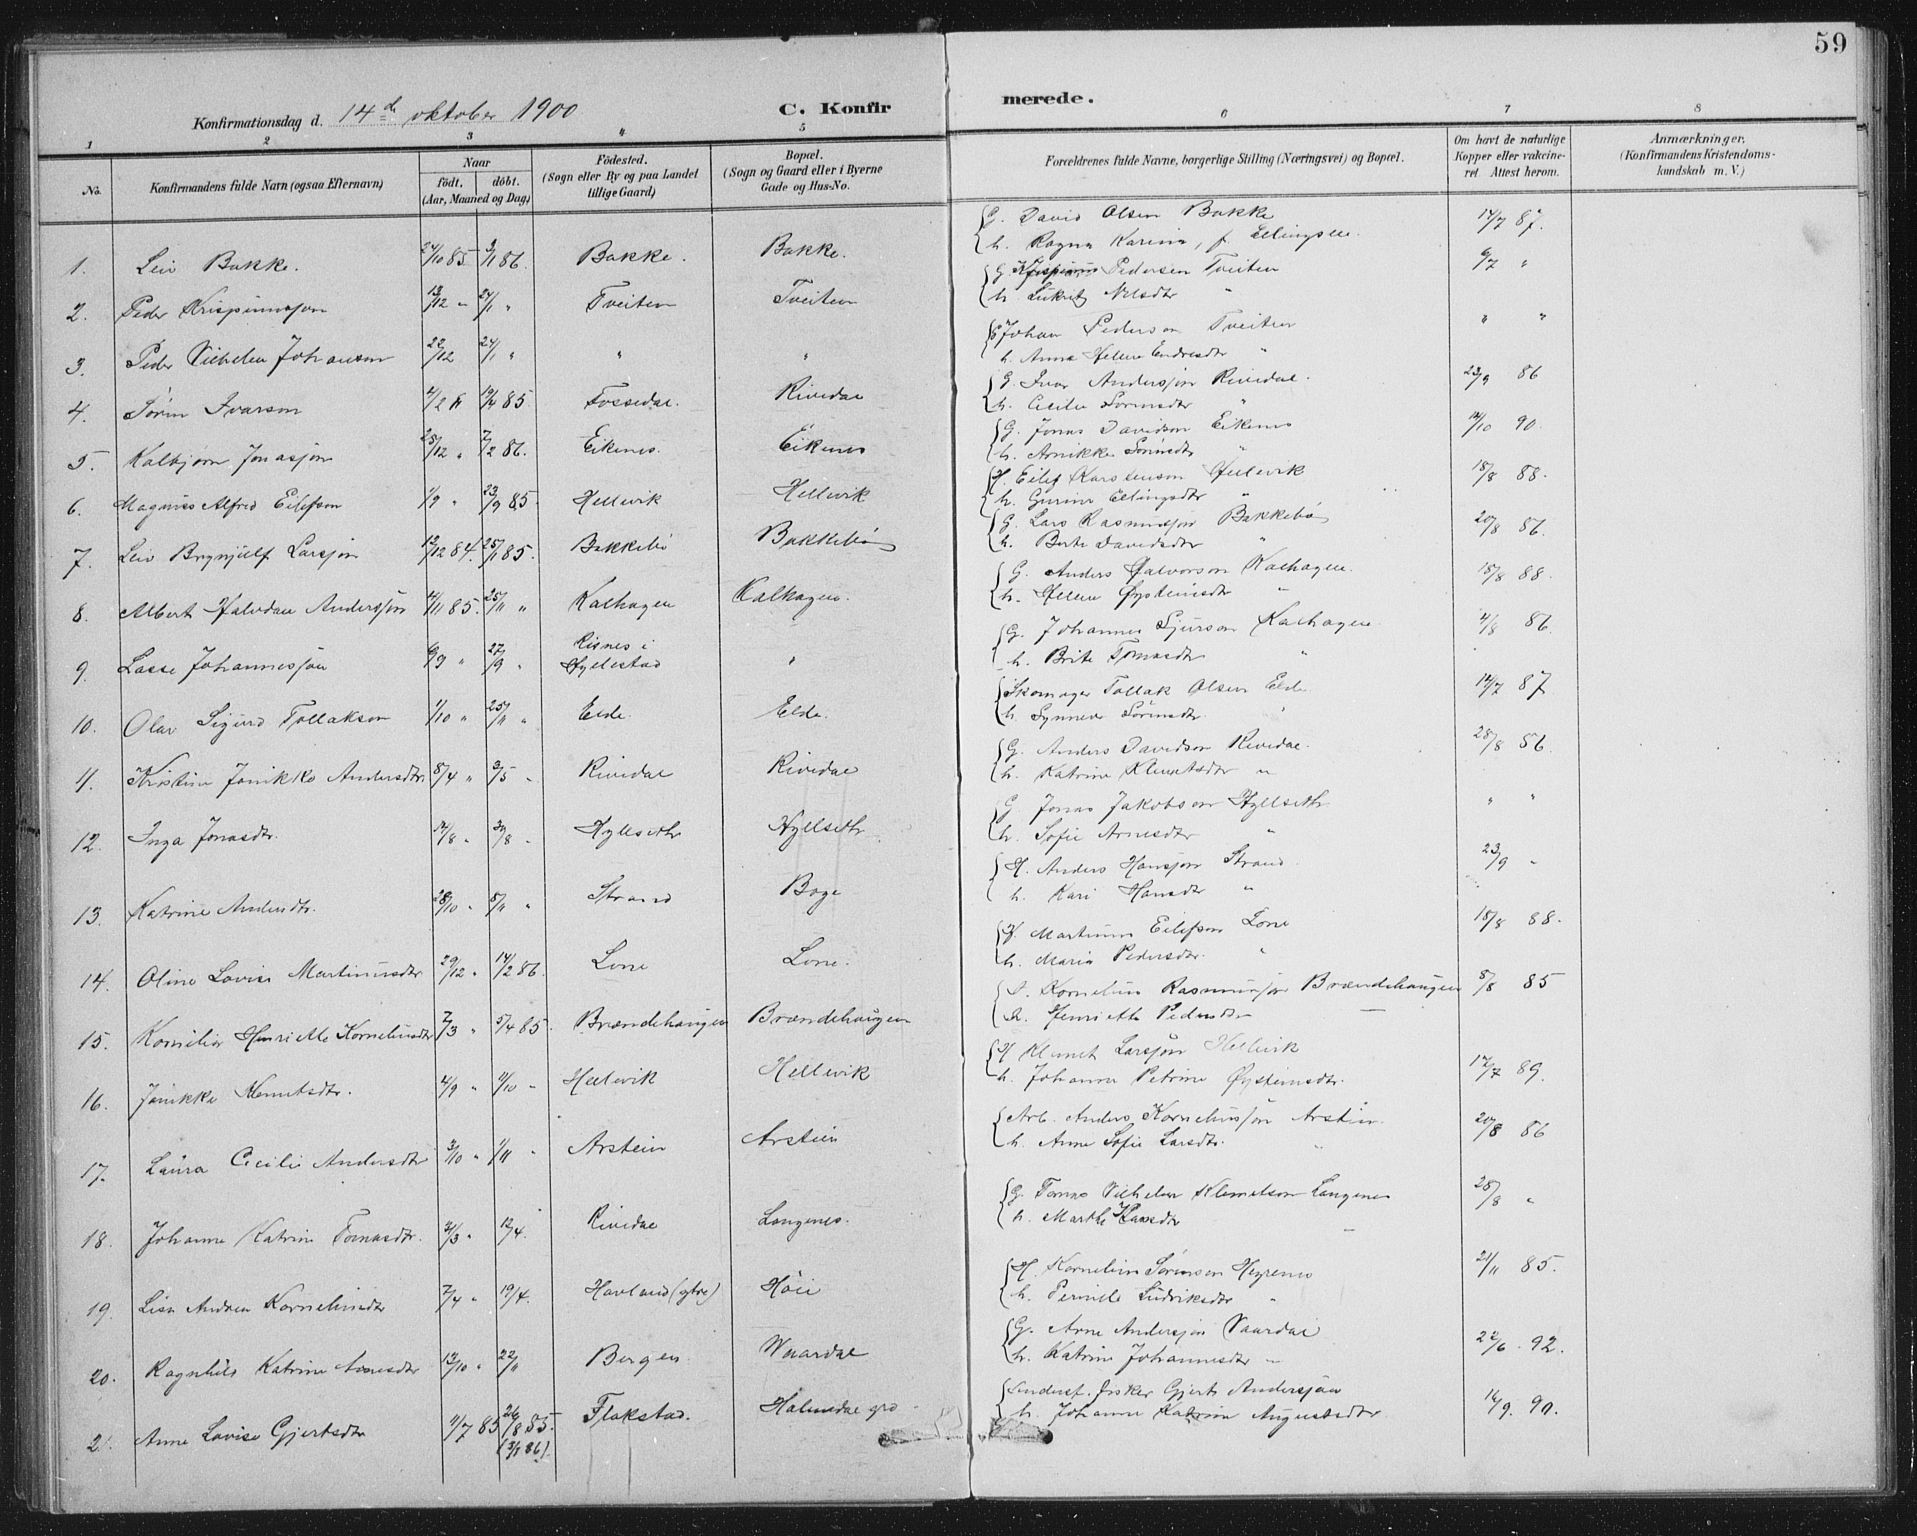 59
Konfirmationsdag d. 14de oktober 1900
C. Konfirmerede.
1 2 3 4 5 6 7 8
No. Konfirmandens fulde Navn (ogsaa Efternavn) Naar födt. döbt. (Aar, Maaned og Dag) Födested. (Sogn eller By og paa Landet tillige Gaard) Bopæl. (Sogn og Gaard eller i Byerne Gade og Hus-No. Forældrenes fulde Navne, borgerlige Stilling (Næringsvei) og Bopæl. Om havt de naturlige Kopper eller vakcineret. Attest herom. Anmærkninger, (Konfirmandens Kristendomskundskab m. V.)
1. Leiv Bakke. 24/10 85 3/1 86. Bakke. Bakke. G. David Olsen Bakke 14/7 87.
h. Ragna Karina, f. Ellingsen
2. Peder Krispinusson 13/12 " 24/1 " Tveiten Tveiten G. Krispinus Pedersen Tveiten 9/7 "
h. Lukrit Nelsdtr "
3. Peder Vilhelm Johanson 22/12 24/1 " " " G. Johan Pederson Tveiten " "
h. Anna Helene Endresdtr "
4. Søren Ivarson 4/2 19/4 85. Fossedal. Rivedal G. Ivar Andersson Rivedal. 23/9 86
h. Cecilie Sørensdtr "
5. Kolbjørn Jonasson 25/12 " 7/2 86. Eikenes. Eikenes G. Jonas Davidson Eikenes 14/10 90.
h. Annikke Sørensdtr "
6. Magnus Alfred Eilefson 1/9 " 23/9 85. Hellevik Hellevik H. Eilef Karstenson Hellevik 18/8 88.
h. Gurine Ellingsdtr "
7. Leiv Brynjulf Larsson 12/12 84. 25/1 85. Bakkebø Bakkebø G. Lars Rasmusson Bakkebø 20/8 86.
h. Berte Davidsdtr "
8. Albert Halvdan Andersson 4/11 85. 25/11 " Kalhagen Kalhagen. G. Anders Halvorson Kalhagen. 18/8 88.
h. Helene Øysteinsdtr "
9. Lasse Johannesson 6/9 " 27/9 " Risnes i Hyllestad " G. Johannes Sjurson Kalhagen 4/8 86.
h. Brite Tomasdtr "
10. Olav Sigurd Tollakson 1/10 " 25/11 " Elde. Elde. Skomager Tollak Olsen Elde 14/7 87
h. Synneva Sørensdtr. "
11. Kristine Jonikke Andersdtr. 8/4 " 3/5 " Rivedal Rivedal G. Anders Davidson Rivedal. 28/8 86.
h. Katrine Klemetsdtr "
12. Inga Jonasdtr. 14/8 " 30/8 " Hyllseth Hyllseth G. Jonas Jakobson Hyllseth " "
h. Sofie Arnesdtr "
13. Katrine Andersdtr. 28/10 " 8/11 " Strand Boge H. Anders Hansson Strand. 23/9 "
h. Kari Hansdtr "
14. Oline Lovise Martinusdtr 29/12 " 14/2 86. Lone Lone. H. Martinus Eilefson Lone 18/8 88.
h. Maria Pedersdtr. "
15. Kornelia Henriette Korneliusdtr 2/3 " 5/4 85. Brændehaugen Brændehaugen Kornelius Rasmusson Brændehaugen 8/8 85
h. Henriette Pedersdtr
16. Jonikke Klemetsdtr. 4/9 " 11/10 " Hellevik Hellevik H. Klemet Larsson Hellevik 17/7 89.
h. Johanne Petrine Øysteinsdtr.
17. Laura Cecilie Andersdtr 3/10 " 1/11 " Arstein Arstein Arb. Anders Korneliusson Arstein. 20/8 86
h. Anne Sofie Larsdtr. "
18. Johanne Katrine Tomasdtr. 2/3 " 12/4. Rivedal Langenes. G. Tomas Vilhelm Klemetson Langenes 28/8 "
h. Marthe Hansdtr
19. Lise Andrea Korneliusdtr 7/4 " 19/4. Havland (ytre) Höii H. Kornelius Sørenson Heggenes 21/11 85.
h. Pernille Ludviksdtr "
20. Ragnhild Katrine Arnesdtr 13/10 " 22/11 Bergen Waardal G. Arne Andersson Vaardal 22/6 92.
h. Katrine Johannesdtr "
21. Anne Lovise Gjertsdtr 11/7 85 26/8 85. Flokstad. Holmedal Underof. fisker Gjert Andersson 14/9. 90.
(3/1 86). h. Johanne Katrine Augustsdtr